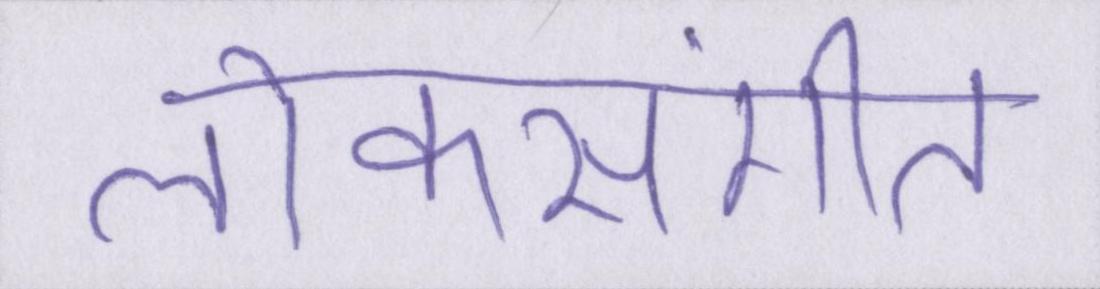 लोकसंगीत